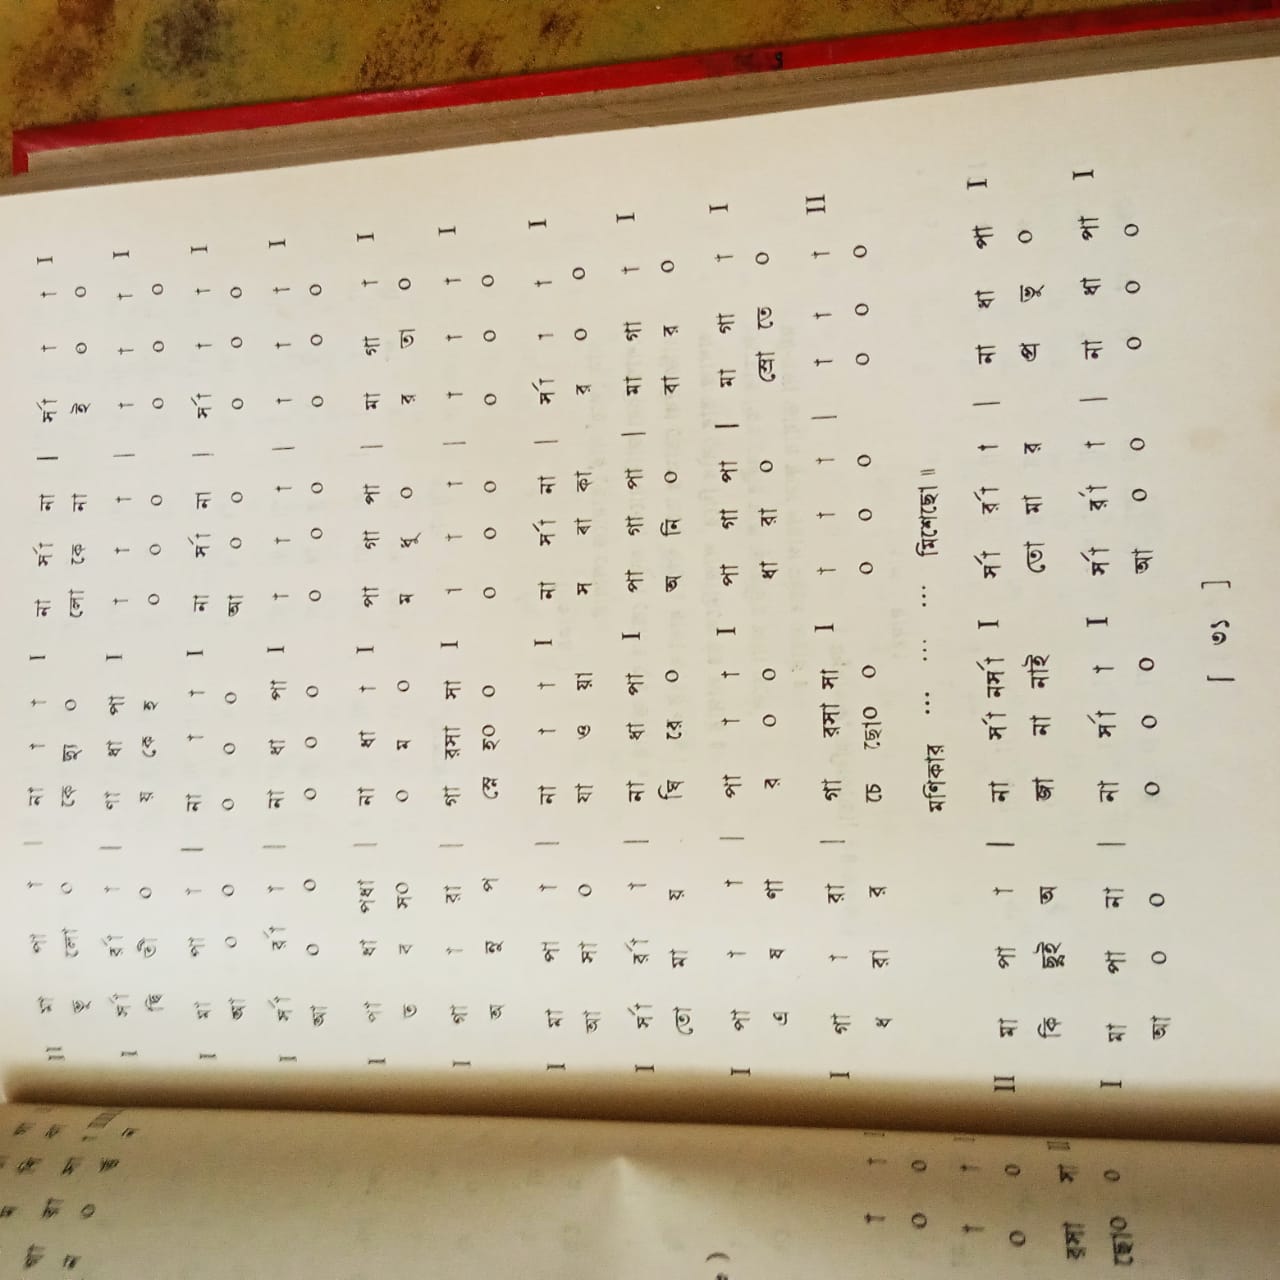 II মা পা া | না া া I না র্সা না | র্সা া া I
ভু লো ০ কে ছ্যু ০ লো কে না ই ০ ০
I র্সা র্রা া | ণা ধা পা I া া া | া া া I
ছি তী ০ য় কে হ ০ ০ ০ ০ ০ ০
I মা পা া | না া া I না র্সা না | র্সা া া I
আ ০ ০ ০ ০ ০ আ ০ ০ ০ ০ ০
I র্সা র্রা া | না ধা পা I া া া | া া া I
আ ০ ০ ০ ০ ০ ০ ০ ০ ০ ০ ০
I পা ধা পধা | না ধা া I পা গা পা | মা গা া I
ত ব স০ ০ ম ০ ম ধু ০ র তা ০
I গা া রা | গা রসা সা I া া া | া া া I
অ নু প স্নে হ০ ০ ০ ০ ০ ০ ০ ০
I মা পা া | না া া I না র্সা না | র্সা া া I
আ সা ০ যা ও য়া স বা কা র ০ ০
I র্সা র্রা া | না ধা পা I পা গা পা | মা গা া I
তো মা য় ঘি রে ০ অ নি ০ বা র ০
I পা া া | পা া া I পা গা পা | মা গা া I
এ ষ ণা র ০ ০ ধা রা ০ স্রো তে ০
I গা া রা | গা রসা সা I া া া | া া া II
ধ রা র চে ছো০ ০ ০ ০ ০ ০ ০ ০
মণিকার ... ... ... মিশেছো॥
II মা পা া | না র্সা নর্সা I র্সা র্রা া | না ধা পা I
কি ছুই অ জা না নাই তো মা র প্র ভু ০
I মা পা না | না র্সা া I র্সা র্রা া | না ধা পা I
আ ০ ০ ০ ০ ০ আ ০ ০ ০ ০ ০
[ ৩১ ]
া া I
০ ০
া া I
০ ০
রসা সা II
ছো০ ০